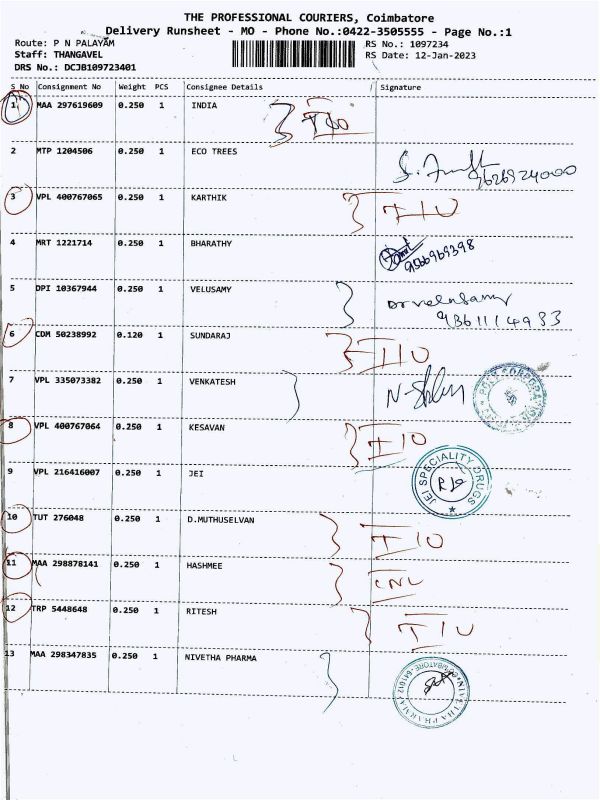 THE PROFESSIONAL COURIERS, Coimbatore
Delivery Runsheet - MO - Phone No.:0422-3505555 - Page No.:1
Route: P N PALAYAM
Staff: THANGAVEL
DRS No.: DCJB109723401
RS No.: 1097234
RS Date: 12-Jan-2023
S No Consignment No Weight PCS Consignee Details Signature
1 MAA 297619609 0.250 1 INDIA
2 MTP 1204506 0.250 1 ECO TREES 9626924000
3 VPL 400767065 0.250 1 KARTHIK
4 MRT 1221714 0.250 1 BHARATHY 9566969398
5 DPI 10367944 0.250 1 VELUSAMY
6 CDM 50238992 0.120 1 SUNDARAJ
7 VPL 335073382 0.250 1 VENKATESH
8 VPL 400767064 0.250 1 KESAVAN
9 VPL 216416007 0.250 1 JEI JEI SPECIALITY DRUGS
10 TUT 276048 0.250 1 D.MUTHUSELVAN
11 MAA 298878141 0.250 1 HASHMEE
12 TRP 5448648 0.250 1 RITESH
13 MAA 298347835 0.250 1 NIVETHA PHARMA